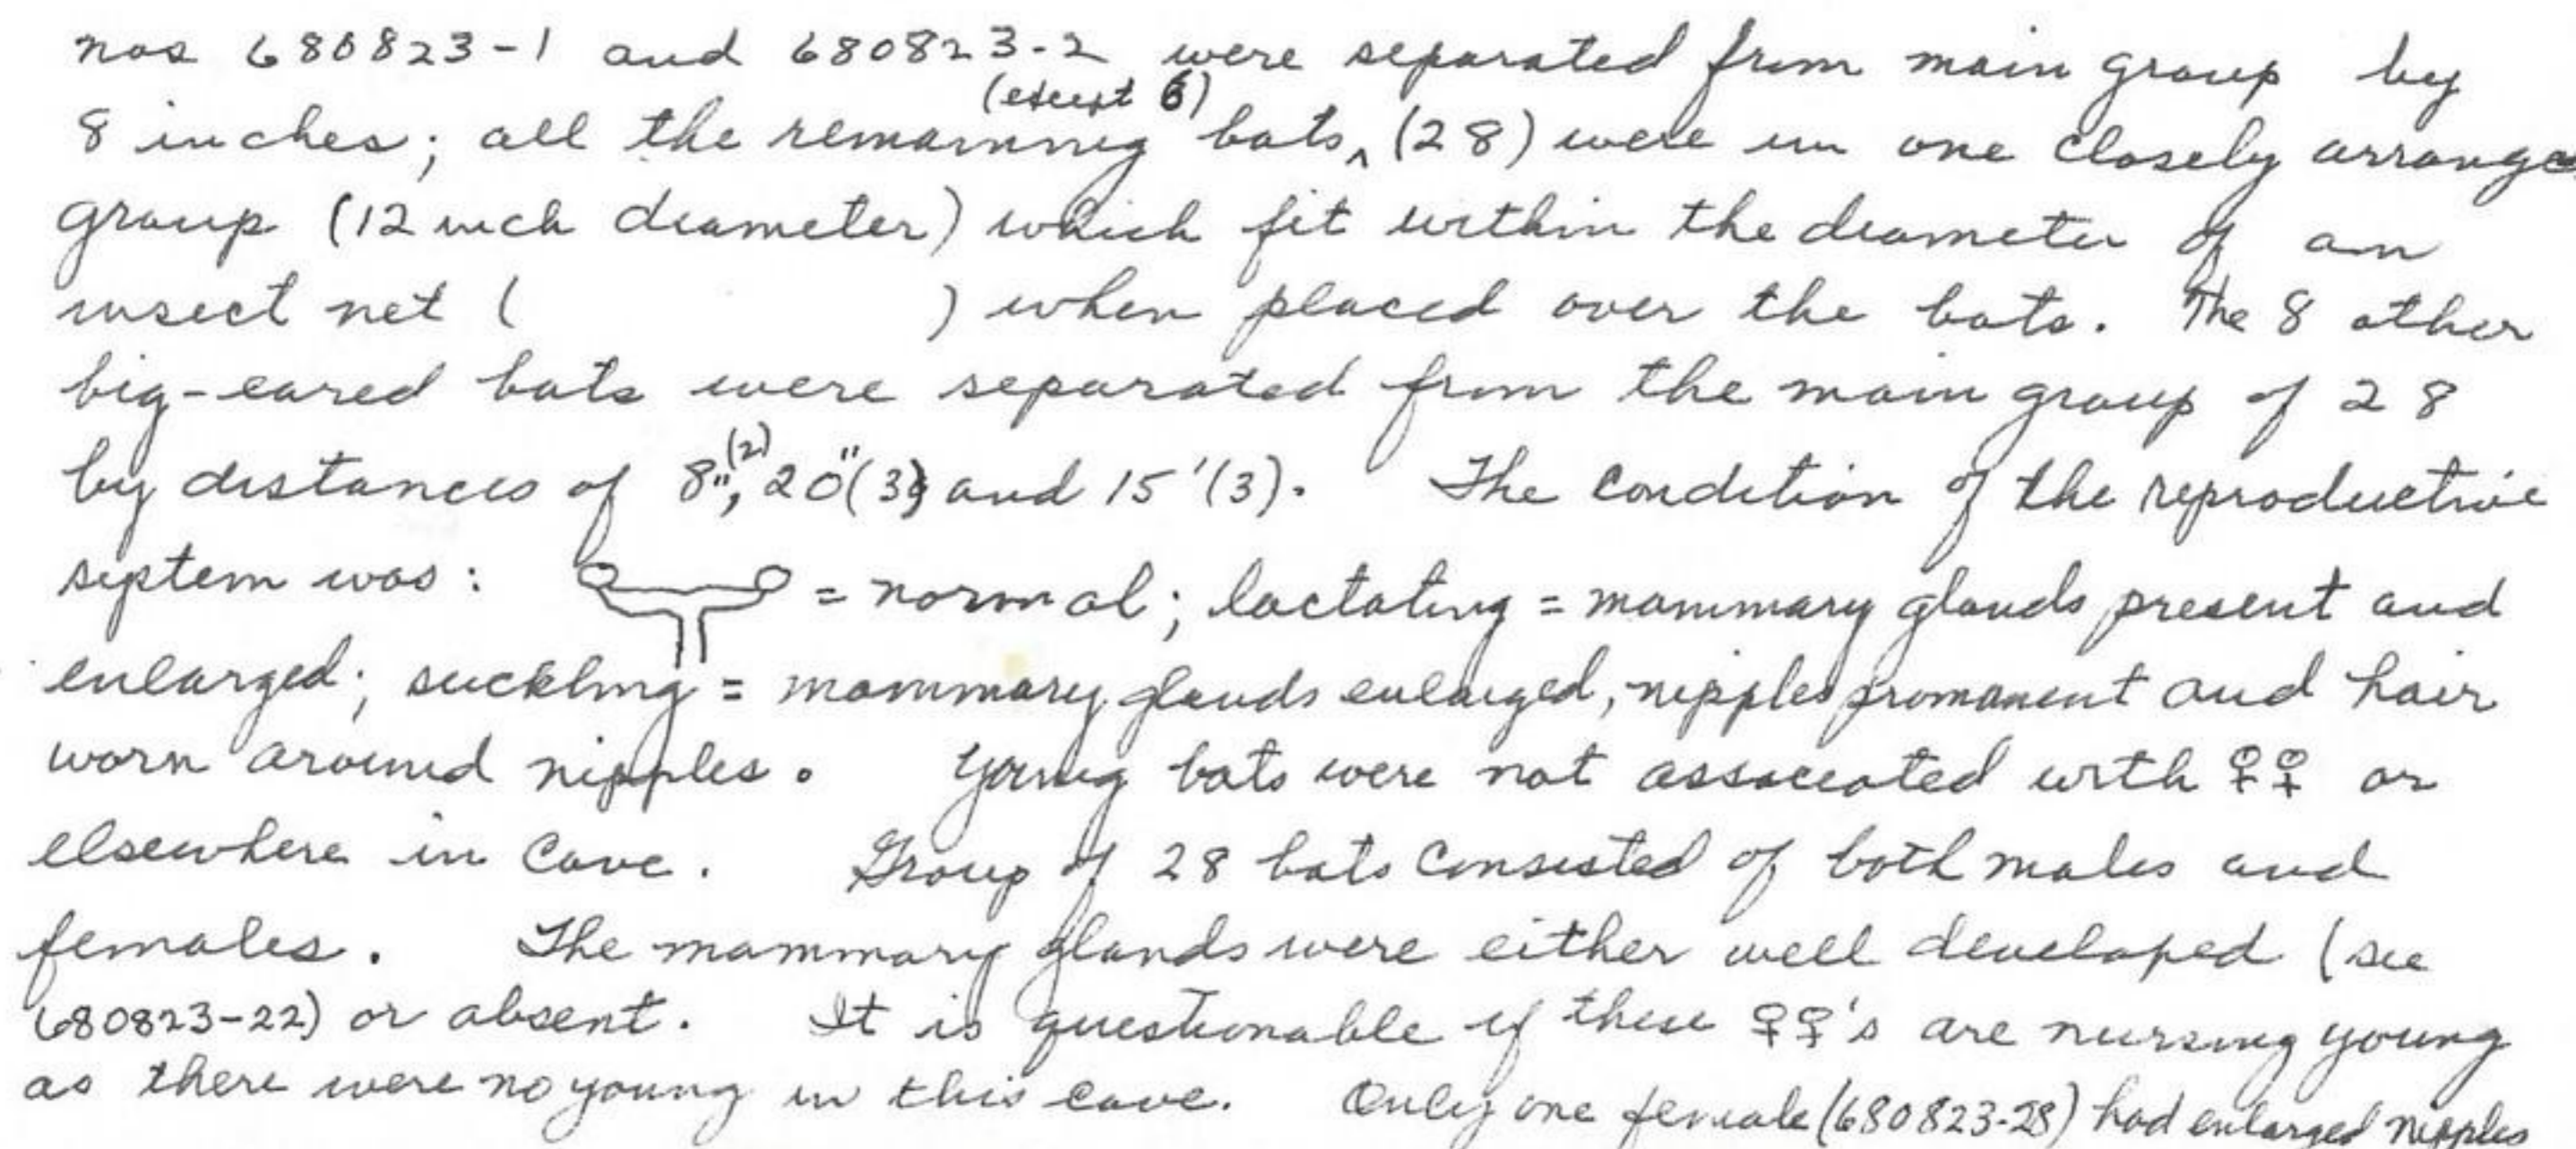 nos 680823-1 and 680823-2 were separated from main group by
(except 6)
8 inches; all the remaining bats, ^ (28) were in one closely arranged
group (12 inch diameter) which fit within the diameter of an
insect net (                ) when placed over the bats. The 8 other
big-eared bats were separated from the main group of 28
by distances of 8"(2), 20"(3) and 15'(3). The condition of the reproductive
system was: = normal; lactating = mammary glands present and
enlarged; suckling = mammary glands enlarged, nipples promanent and hair
worn around nipples. Young bats were not associated with ♀♀ or
elsewhere in cave. Group of 28 bats consisted of both males and
females. The mammary glands were either well developed (see
680823-22) or absent. It is questionable if these ♀♀'s are nursing young
as there were no young in this cave. Only one female (680823-28) had enlarged nipples